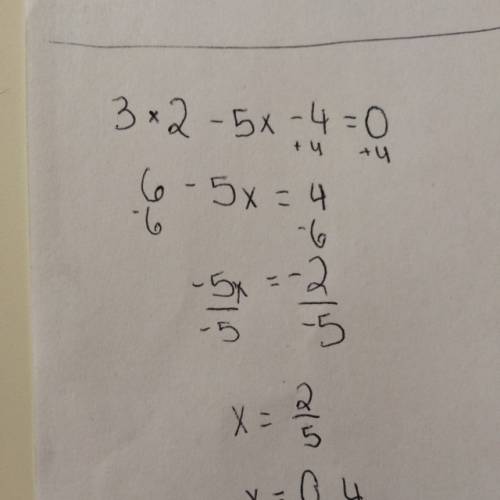 3 × 2 - 5x - 4 = 0
+4 +4
6 - 5x = 4
-6 -6
-5x = -2
-5 -5
x = 2/5
x = 0.4